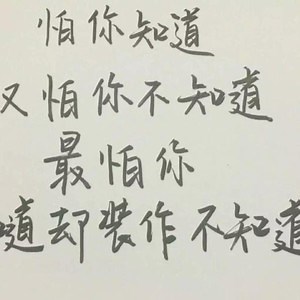 怕你知道
又怕你不知道
最怕你
道却装作不知道